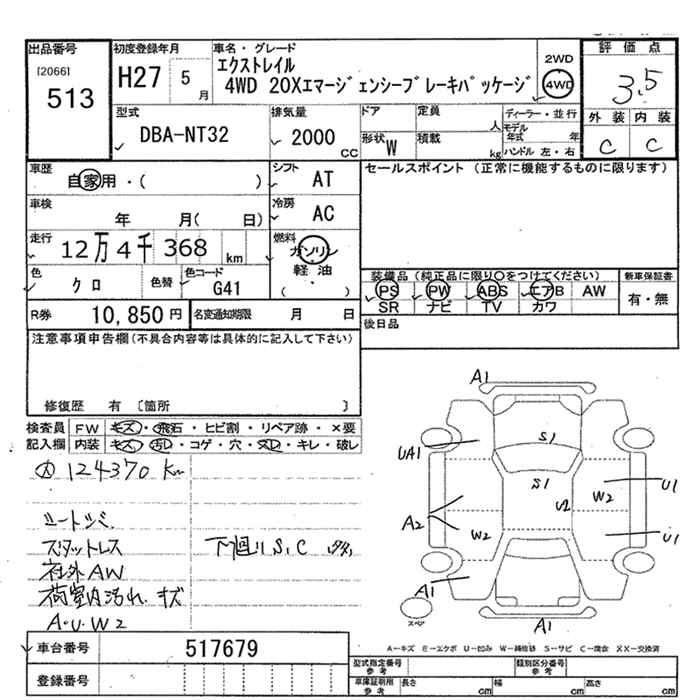 出品番号
[2066]
513
初度登録年月
H27 5 月
車名・グレード
エクストレイル
4WD 20Xエマージェンシーブレーキパッケージ
2WD
4WD
評価点
3.5
外装 内装
C C
型式
DBA-NT32
排気量
2000 CC
ドア
定員
人
形状 W
積載
kg
ディーラー・並行
モデル年式 年
ハンドル 左・右
車歴
自家用・( )
シフト
AT
セールスポイント (正常に機能するものに限ります)
車検
年 月( 日)
冷房
AC
走行
12万4千368 km
燃料
ガソリン
・
軽油
( ・ )
色
クロ
色替
色コード
G41
装備品 (純正品に限り○をつけてください)
PS PW ABS エアB AW
SR ナビ TV カワ
新車保証書
有・無
R券 10,850 円
名変通知期限 月 日
後日品
注意事項申告欄(不具合内容等は具体的に記入して下さい)
修復歴 有 〔箇所 〕
検査員 FW キズ・飛石・ヒビ割・リペア跡・×要
記入欄 内装 キズ・汚レ・コゲ・穴・スレ・キレ・破レ
124370 Km
シートシミ
スタットレス
下廻りS.C
社外AW
荷室内汚れ.キズ
A・U・W2
A1
UA1
S1
S1
U2
W2
U1
A2
W2
U1
A1
A1
スペア
A−キズ E−エクボ U−凹み W−補修跡 S−サビ C−腐食 XX−交換済
車台番号 517679
登録番号
型式指定番号 参考
類別区分番号 参考
車庫証明用 参考 長さ cm 幅 cm 高さ cm